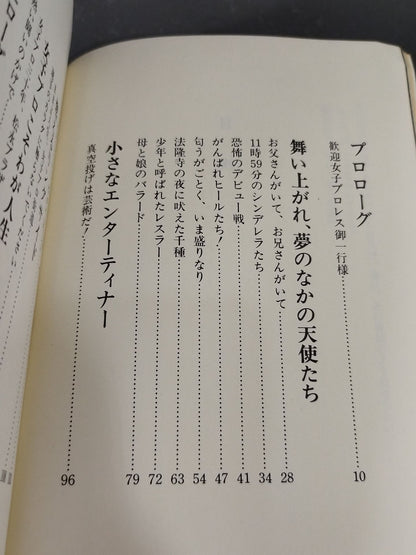 プロローグ
歓迎女子プロレス御一行様……10
舞い上がれ、夢のなかの天使たち
お父さんがいて、お兄さんがいて……28
11時59分のシンデレラたち……34
恐怖のデビュー戦……41
がんばれヒールたち！……47
匂うがごとく、いま盛りなり……54
法隆寺の夜に吠えた千種……63
少年と呼ばれたレスラー……72
母と娘のバラード……79
小さなエンターティナー
真空投げは芸術だ！……96